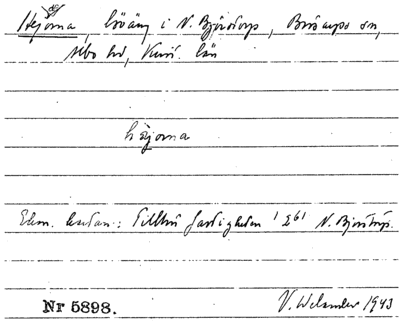 Hejorna, löväng i N. Björstorps, Brösarps sn,
Albo hd, Krist. län
häjorna
Ekon. kartan: Tillhör fastigheten N. Björstorp.
Nr 5898. V. Welander 1943